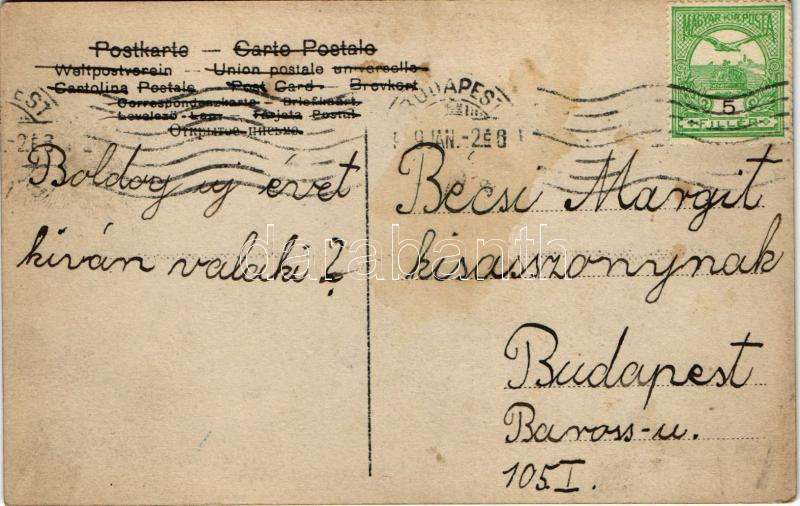 Postkarte — Carte Postale
Weltpostverein — Union postale universelle
Cartolina Postale Post Card Brevkort
Correspondenzkarte Briefkaart
Levelező-Lap Tarjeta Postal
Открытое письмо.
MAGYAR KIR. POSTA
5
FILLÉR
BUDAPEST
Boldog uj évet
kiván valaki?
Bécsi Margit
kisasszonynak
Budapest
Baross-u.
105 I.
darabanth